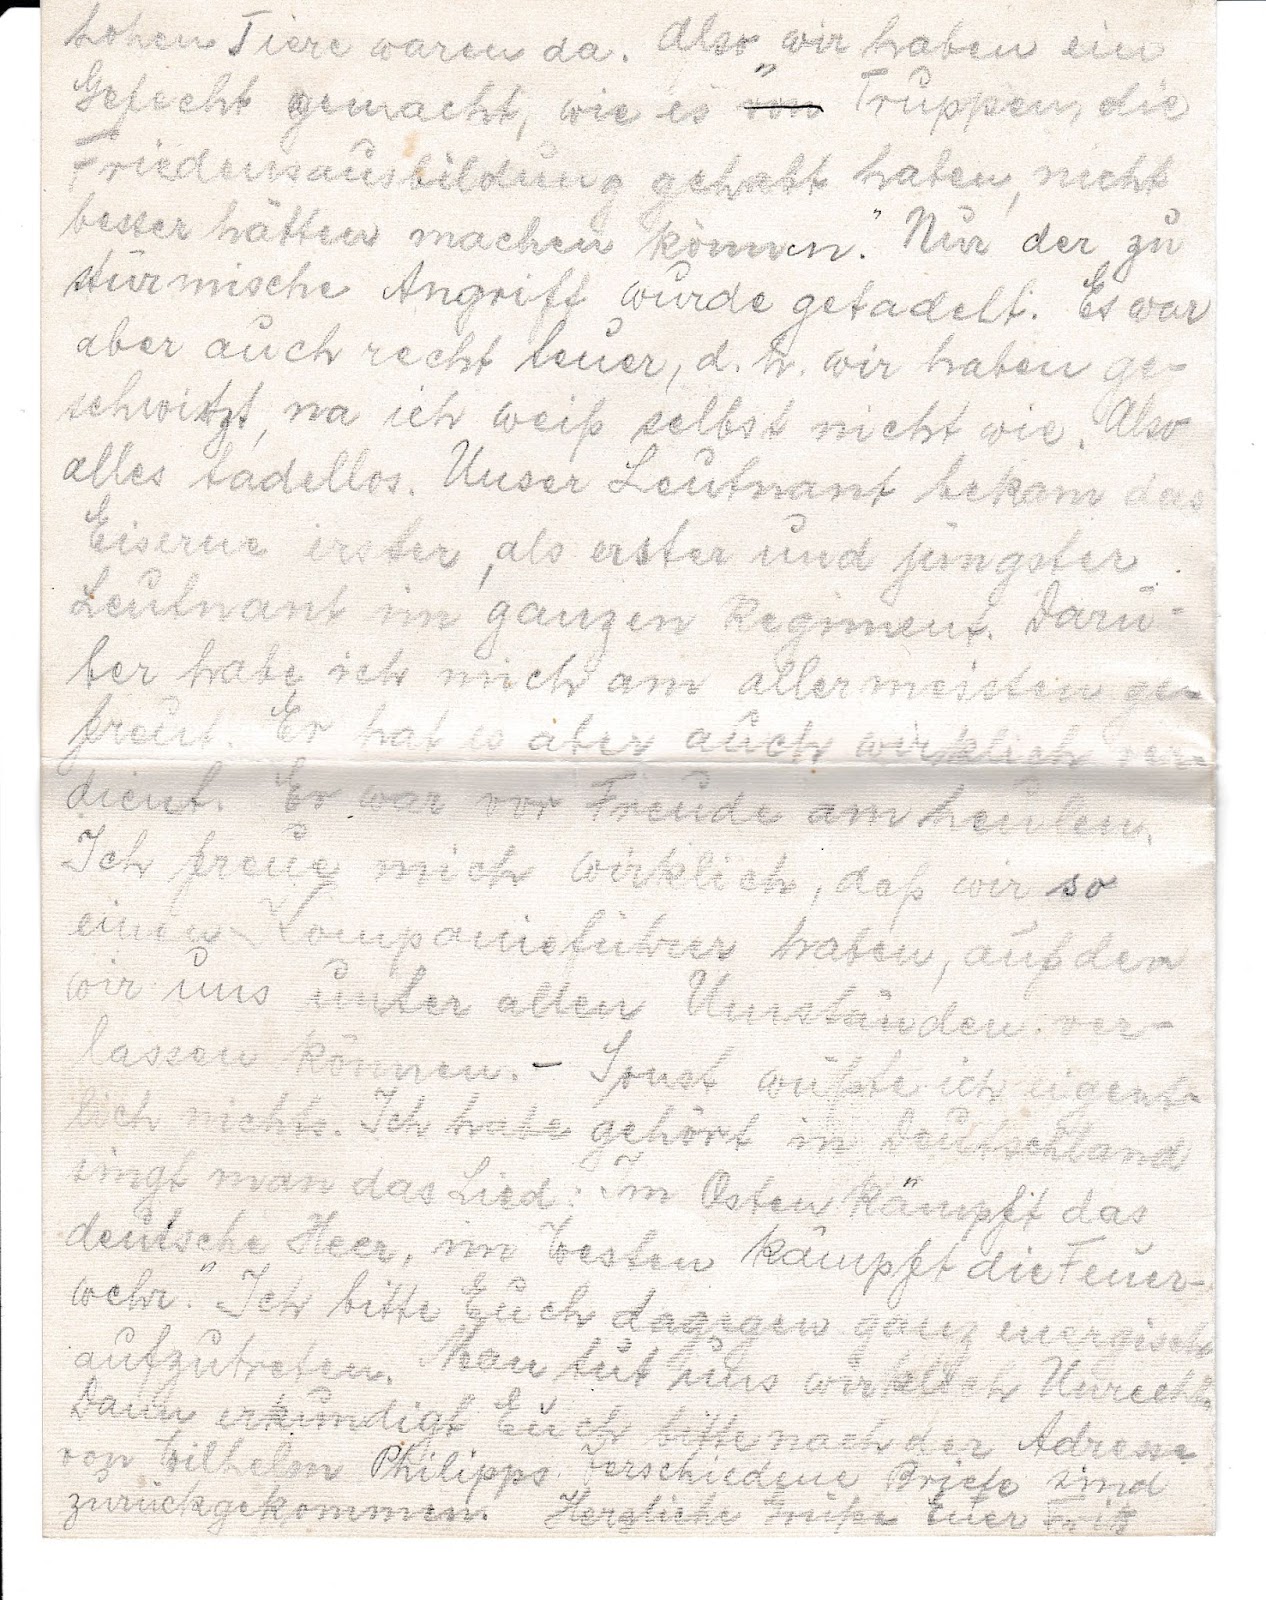 hohen Tiere waren da. Also „wir haben ein
Gefecht gemacht, wie es von Truppen, die
Friedensausbildung gehabt haben, nicht
besser hätten machen können." Nur der zu
stürmische Angriff wurde getadelt. Es war
aber auch recht teuer, d. h. wir haben ge-
schwitzt, na ich weiß selbst nicht wie. Also
alles tadellos. Unser Leutnant bekam das
Eiserne erster, als erster und jüngster
Leutnant im ganzen Regiment. Darü-
ber habe ich mich am allermeisten ge-
freut. Er hat es aber auch wirklich ver-
dient. Er war vor Freude am heulen.
Ich freue mich wirklich, daß wir so
einen Kompanieführer haben, auf den
wir uns unter allen Umständen ver-
lassen können. – Sonst wüßte ich eigent-
lich nichts. Ich habe gehört in Deutschland
singt man das Lied: „Im Osten kämpft das
deutsche Heer, im Westen kämpft die Feuer-
wehr." Ich bitte Euch dagegen ganz energisch
aufzutreten. Man tut uns wirklich Unrecht.
Dann erkundigt Euch bitte nach der Adresse
von Wilhelm Philipps. Verschiedene Briefe sind
zurückgekommen. Herzliche Grüße Euer Fritz